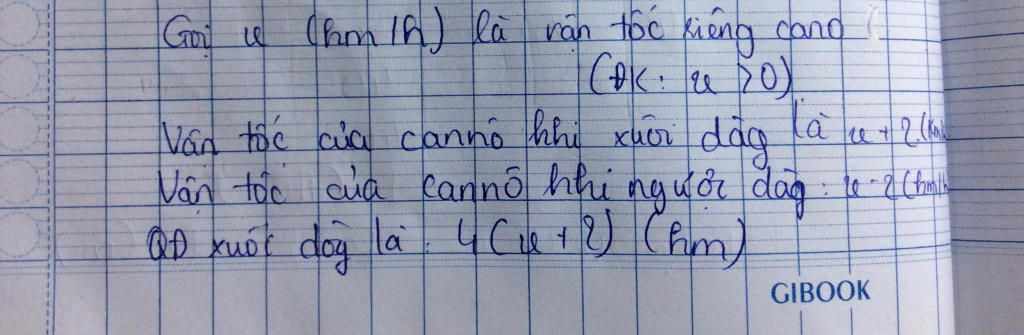 Gọi x (km/h) là vận tốc riêng canô
(ĐK: x > 0)
Vận tốc của cannô khi xuôi dòg là x + 2 (km/h
Vận tốc của cannô khi ngược dòg: x - 2 (km/h
QĐ xuôi dòg là: 4(x + 2) (km)
GIBOOK